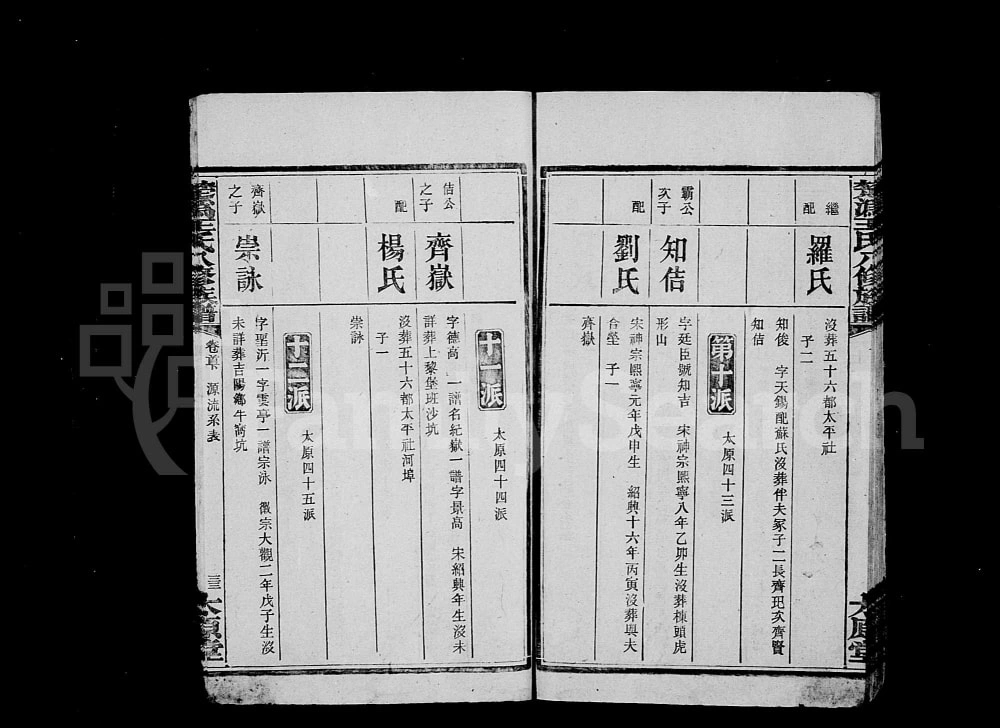 楚溈王氏八修族譜
太原堂
繼配
羅氏
沒葬五十六都太平社
子二
知俊 字天錫配蘇氏沒葬伴夫冢子二長齊玘次齊賢
知佶
第十派
太原四十三派
霸公次子
知佶
字廷臣號知吉 宋神宗熙寧八年乙卯生沒葬棟頭虎
形山
配
劉氏
宋神宗熙寧元年戊申生 紹興十六年丙寅沒葬與夫
合塋 子一
齊嶽
十一派
太原四十四派
佶公之子
齊嶽
字德高 一譜名紀嶽一譜字景高 宋紹興年生沒未
詳葬上黎堡班沙坑
配
楊氏
沒葬五十六都太平社河埠
子一
崇詠
十二派
太原四十五派
齊嶽之子
崇詠
字聖沂一字雲亭一譜宗泳 徽宗大觀二年戊子生沒
未詳葬吉陽鄉牛窩坑
楚溈王氏八修族譜
卷首下 源流系表
三三
太原堂
FamilySearch